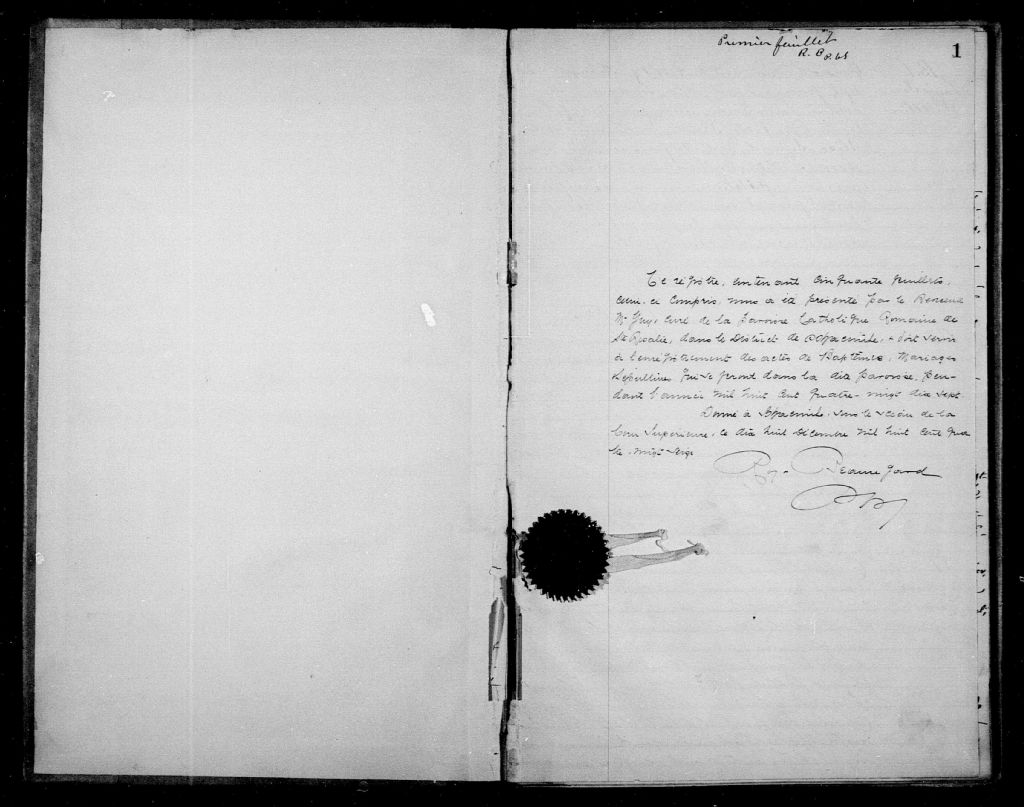 Premier feuillet
R. B
1
Ce registre, contenant cinquante feuillets,
celui-ci compris, nous a été présenté par le Reverend
Mr Guy, curé de la paroisse Catholique Romaine de
Ste Rosalie, dans le District de St Hyacinthe, & doit servir
à l'enregistrement des actes de Baptêmes, Mariages
Sépultures qui se feront dans la dite paroisse, pen-
dant l'année mil huit cent quatre-vingt dix sept.
Donné à St Hyacinthe, sous le sceau de la
Cour Supérieure, le dix huit décembre mil huit cent qua
tre vingt seize
Roy - Beauregard